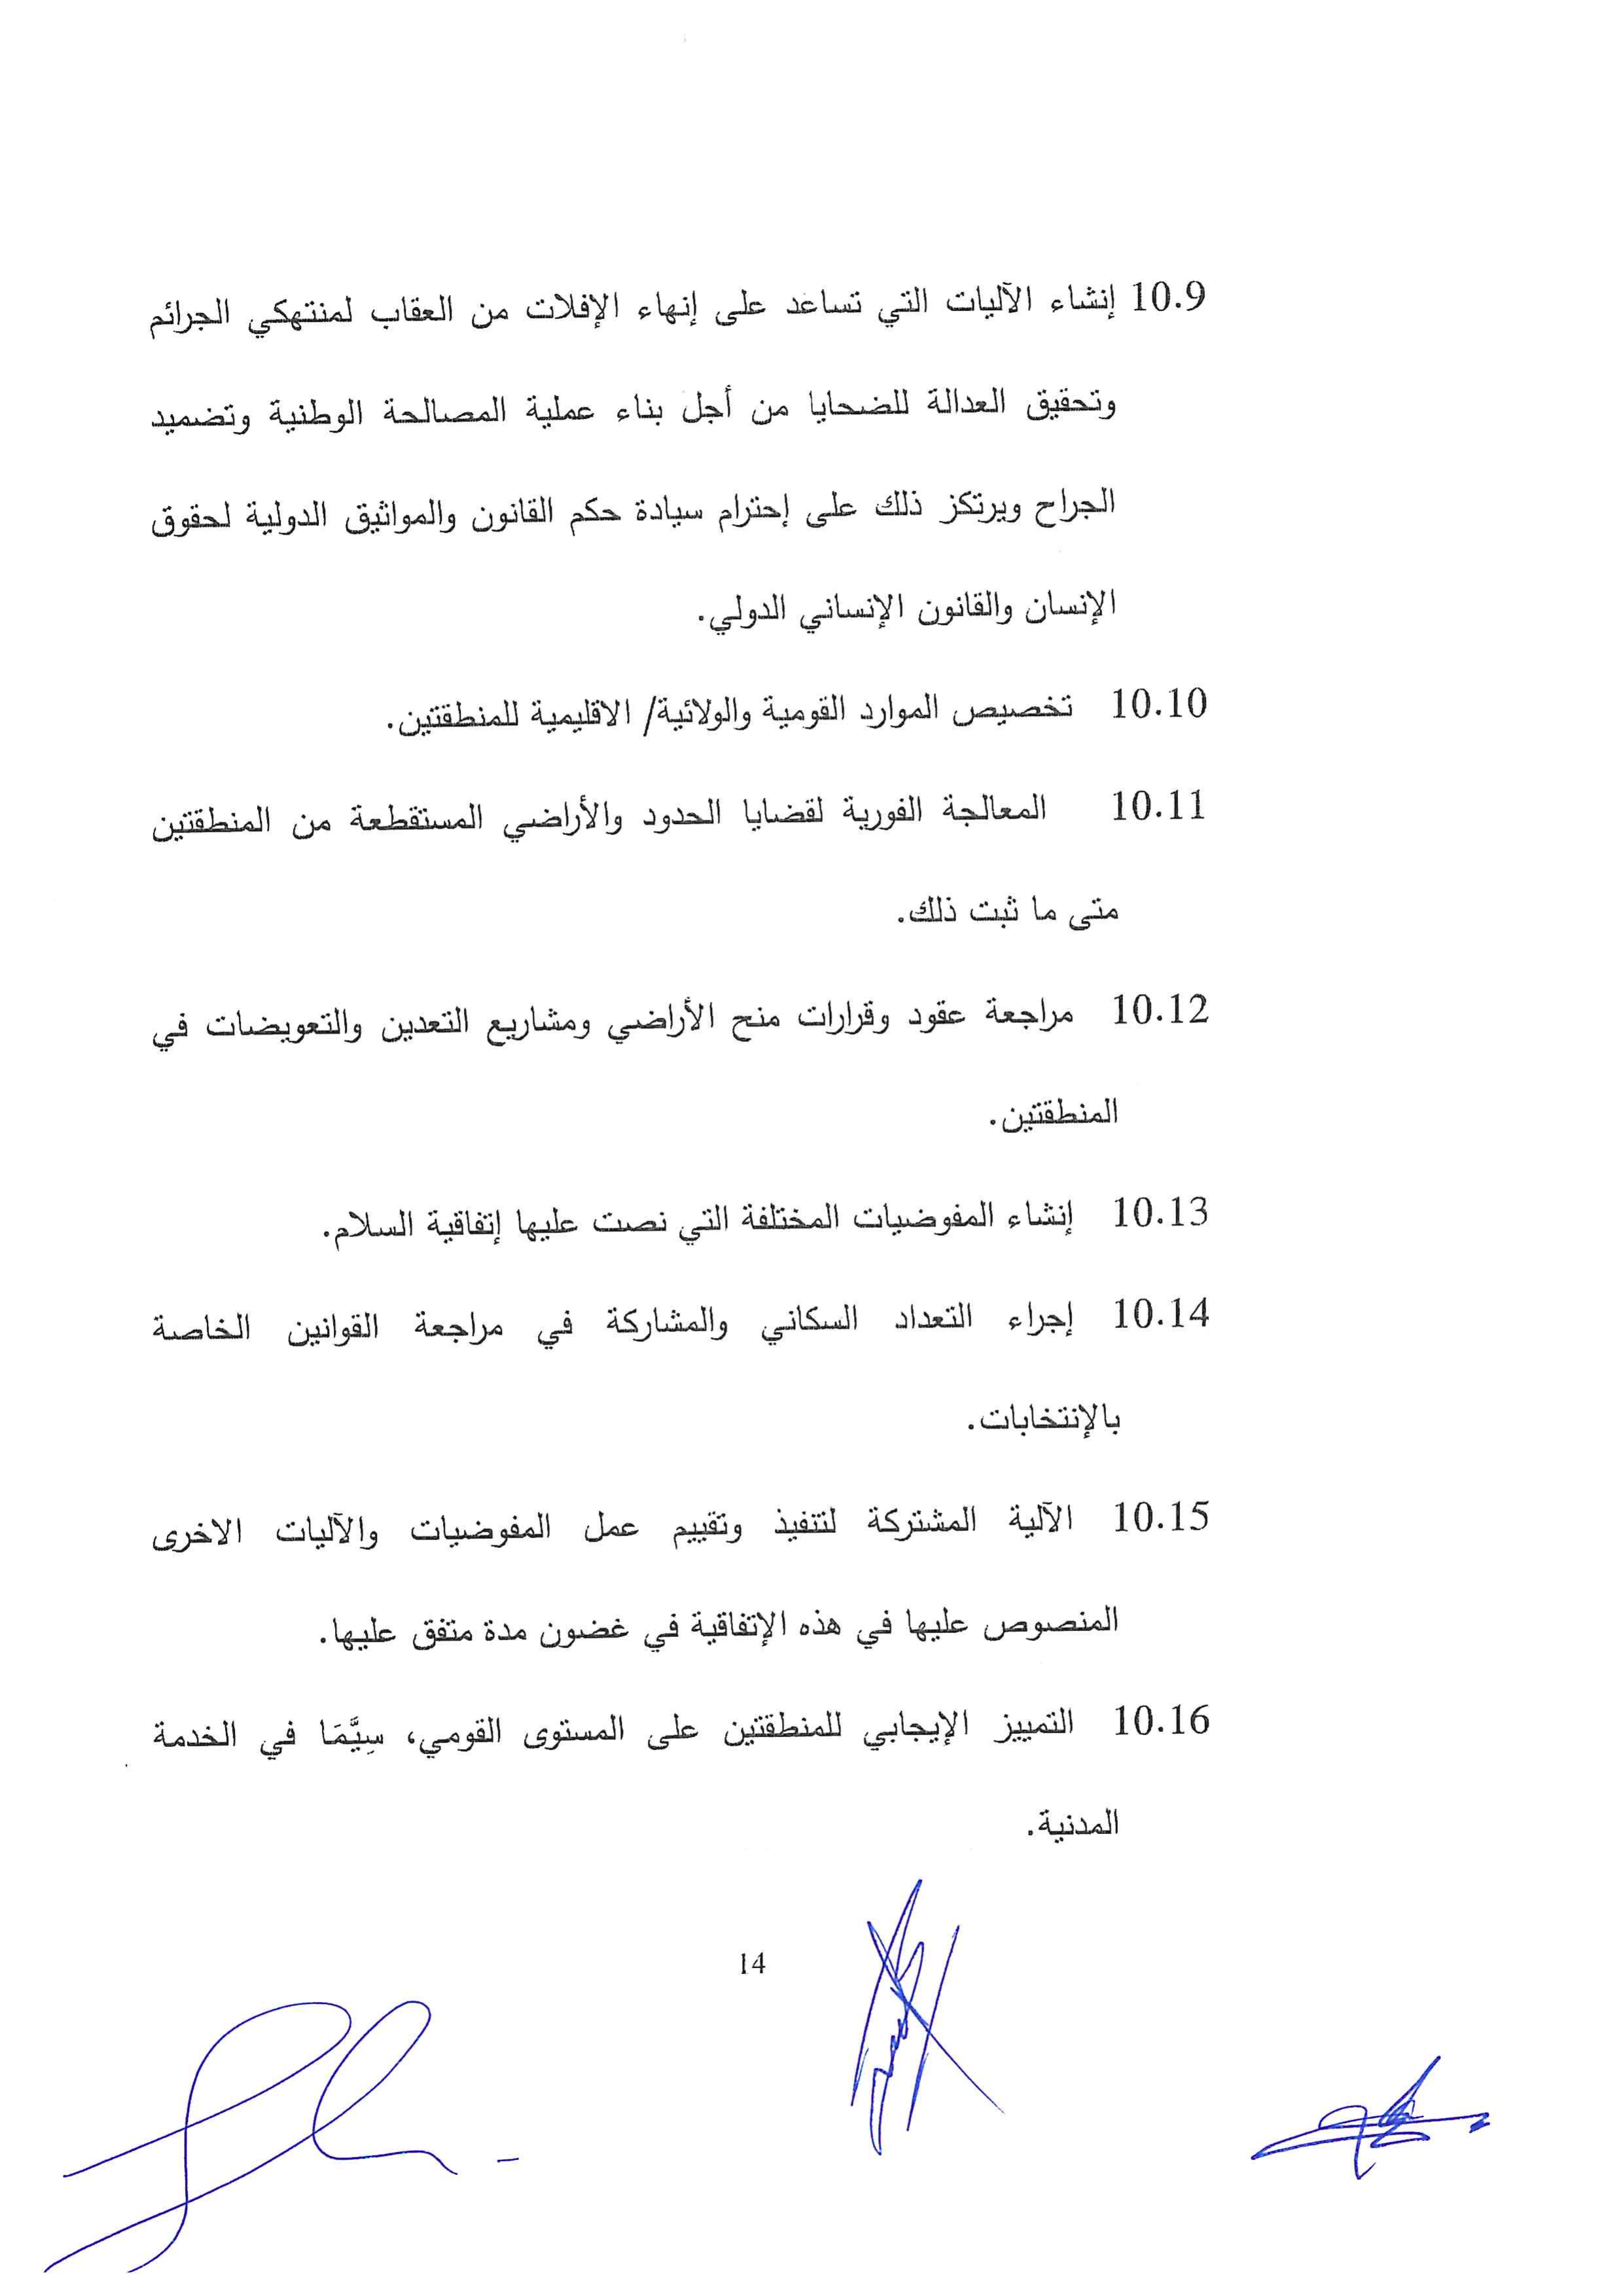 10.9 إنشاء الآليات التي تساعد على إنهاء الإفلات من العقاب لمنتهكي الجرائم
وتحقيق العدالة للضحايا من أجل بناء عملية المصالحة الوطنية وتضميد
الجراح ويرتكز ذلك على إحترام سيادة حكم القانون والمواثيق الدولية لحقوق
الإنسان والقانون الإنساني الدولي.
10.10 تخصيص الموارد القومية والولائية/ الاقليمية للمنطقتين.
10.11 المعالجة الفورية لقضايا الحدود والأراضي المستقطعة من المنطقتين
متى ما ثبت ذلك.
10.12 مراجعة عقود وقرارات منح الأراضي ومشاريع التعدين والتعويضات في
المنطقتين.
10.13 إنشاء المفوضيات المختلفة التي نصت عليها إتفاقية السلام.
10.14 إجراء التعداد السكاني والمشاركة في مراجعة القوانين الخاصة
بالإنتخابات.
10.15 الآلية المشتركة لتنفيذ وتقييم عمل المفوضيات والآليات الاخرى
المنصوص عليها في هذه الإتفاقية في غضون مدة متفق عليها.
10.16 التمييز الإيجابي للمنطقتين على المستوى القومي، سِيَّمَا في الخدمة
المدنية.
14